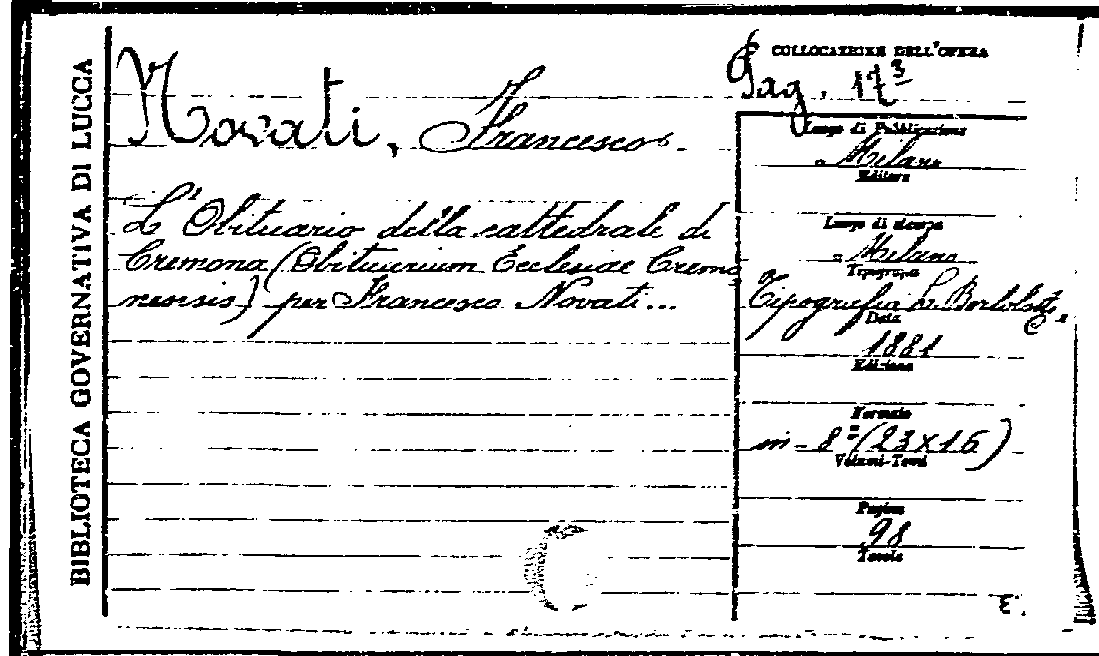 BIBLIOTECA GOVERNATIVA DI LUCCA
Novati, Francesco.
L'Obituario della cattedrale di
Cremona (Obituarium Ecclesiae Cremo
nensis) per Francesco Novati...
COLLOCAZIONE DELL'OPERA
Pag. 17³
Luogo di Pubblicazione
Milano
Editore
Luogo di stampa
Milano
Tipografia
Tipografia L. Bortolotti e C.
Data
1881
Edizione
Formato
in-8º (23x16)
Volumi-Tomi
Pagine
98
Tavole
E.